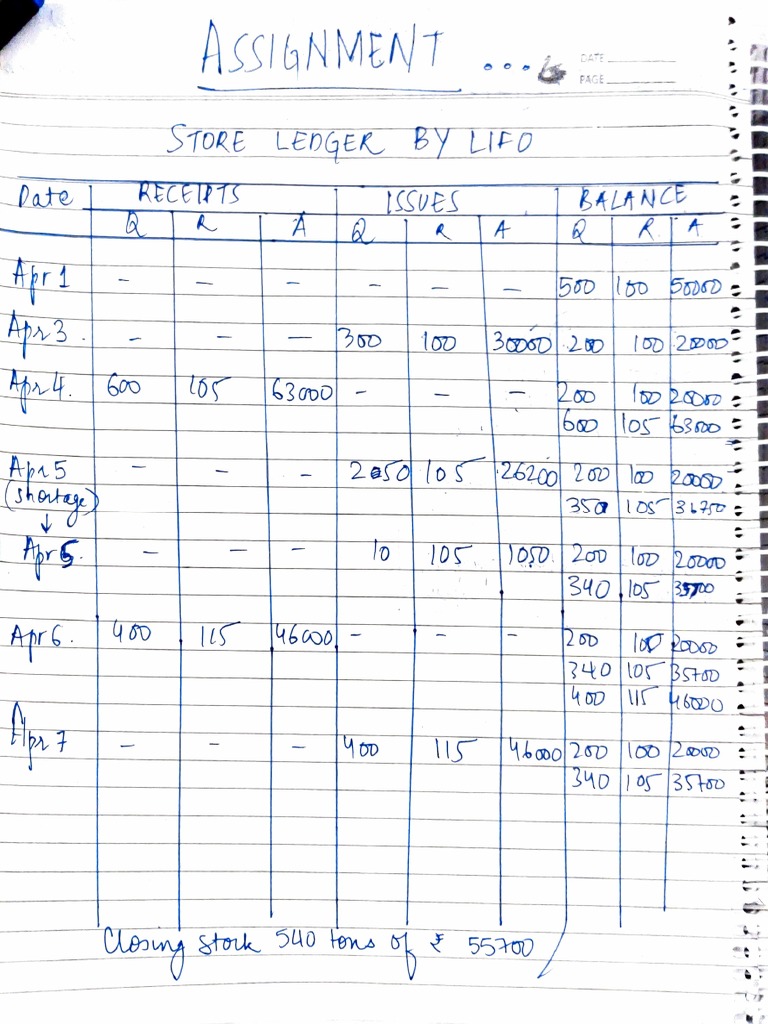 ASSIGNMENT ...
DATE
PAGE
STORE LEDGER BY LIFO
Date RECEIPTS ISSUES BALANCE
Q R A Q R A Q R A
Apr 1 - - - - - - 500 100 50000
Apr 3. - - - 300 100 30000 200 100 20000
Apr 4. 600 105 63000 - - - 200 100 20000
600 105 63000
Apr 5 - - - 250 105 26200 200 100 20000
(shortage) 350 105 36750
↓
Apr 5. - - - 10 105 1050. 200 100 20000
340 105 35700
Apr 6. 400 115 46000 - - - 200 100 20000
340 105 35700
400 115 46000
Apr 7 - - - 400 115 46000 200 100 20000
340 105 35700
Closing stock 540 tons of ₹ 55700/